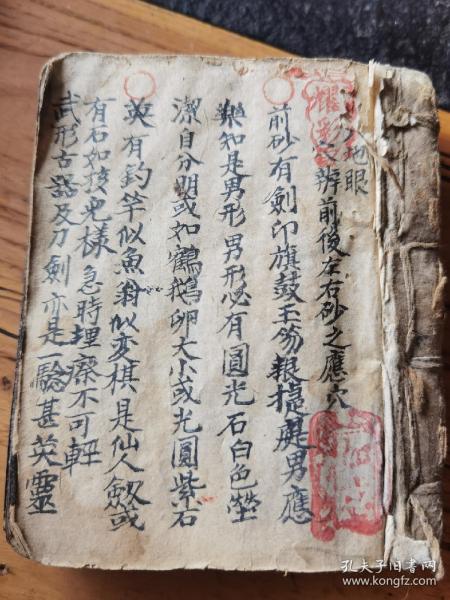 地眼
辨前後左右砂之應穴
前砂有劍印旗鼓玉笏報捷是男應
難知是男形男形必有圓光石白色瑩
潔自分明或如鶴鵝卵大小或光圓紫石
英有釣竿似魚翁似变棋是仙人劔或
有石如孩兒樣急時埋塟不可軽
武形古器及刀劍亦是一驗甚英靈
孔夫子旧书网
www.kongfz.com